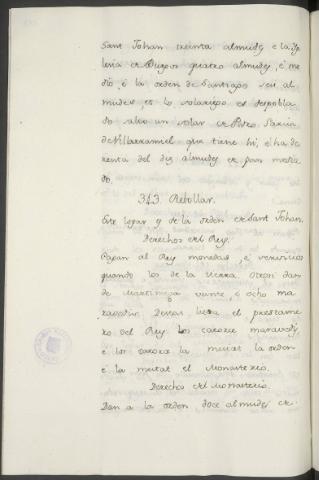 Sant Johan treinta almudes e la Yg
lesia de Burgos quatro almudes, e me
dio, e la orden de Santiago seis al
mudes, es lo solariego es despobla
do salvo un solar de Pedro Garcia
de Villarramiel que tiene hi, e ha de
renta del dez almudes de pan media
do.
313. Rebollar.
Este logar es de la orden de Sant Johan.
Derechos del Rey.
Pagan al Rey monedas, e servicios
quando los de la tierra. Otrosi dan
de martiniega veinte, e ocho ma
ravedis. Destos lieva el prestame
ro del Rey los catorce maravedis,
e los catorce la meitat la orden
e la meitat el Monasterio.
Derechos del Monasterio.
Dan a la orden doce almudes de